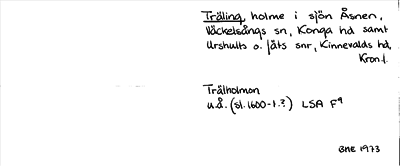 Träling, holme i sjön Åsnen,
Väckelsångs sn, Konga hd samt
Urshults o. Jäts snr, Kinnevalds hd,
Kron.l.
Trälholmon
u.å. (sl. 1600-t.?) LSA F9
BHE 1973